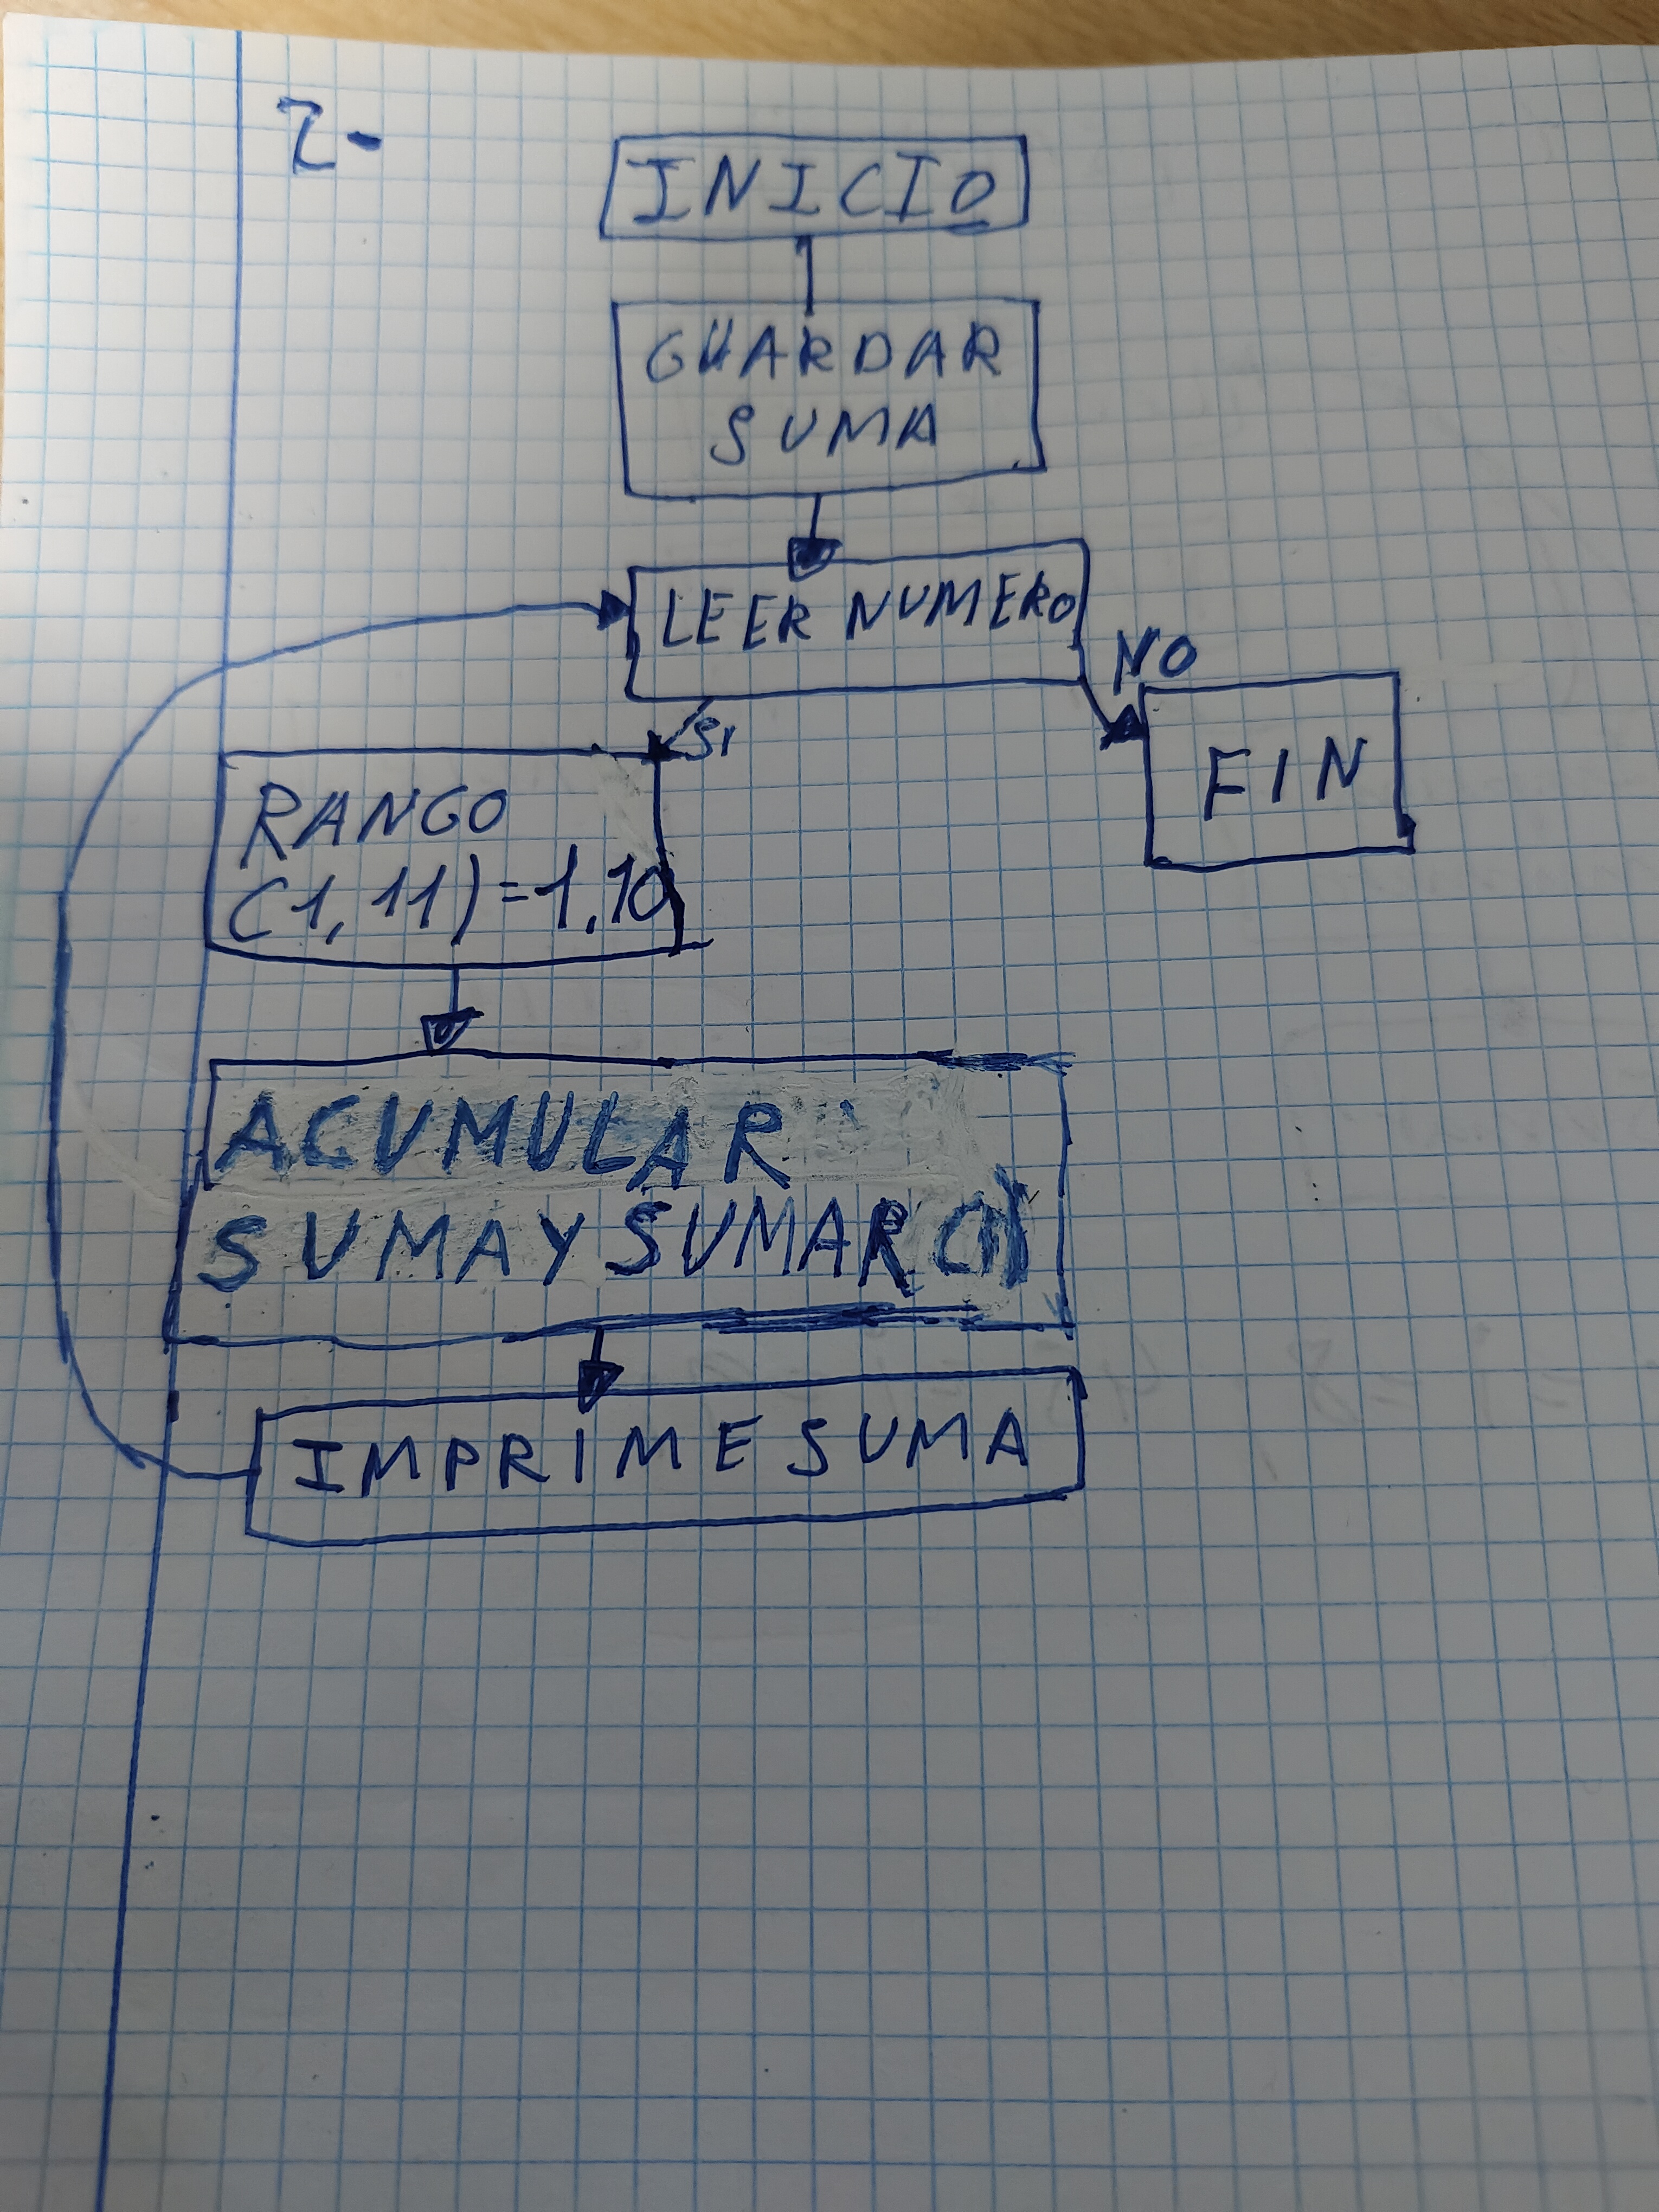 2-
INICIO
GUARDAR
SUMA
LEER NUMERO
NO
SI
FIN
RANGO
(1, 11) = 1,10
ACUMULAR
SUMA Y SUMAR (1)
IMPRIME SUMA